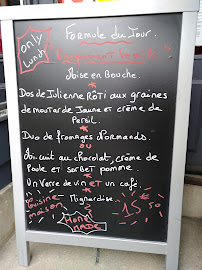 only
Lunch
Formule du Jour.
Mise en Bouche.
Dos de Julienne Rôti aux graines
de moutarde Jaune et crème de
Persil.
Duo de fromages Normands.
ou
Mi-cuit au chocolat, crème de
Poire et sorbet pomme.
Un Verre de vin et un café.
Mignardise
Cuisine
maison
15€50
Home
MADE